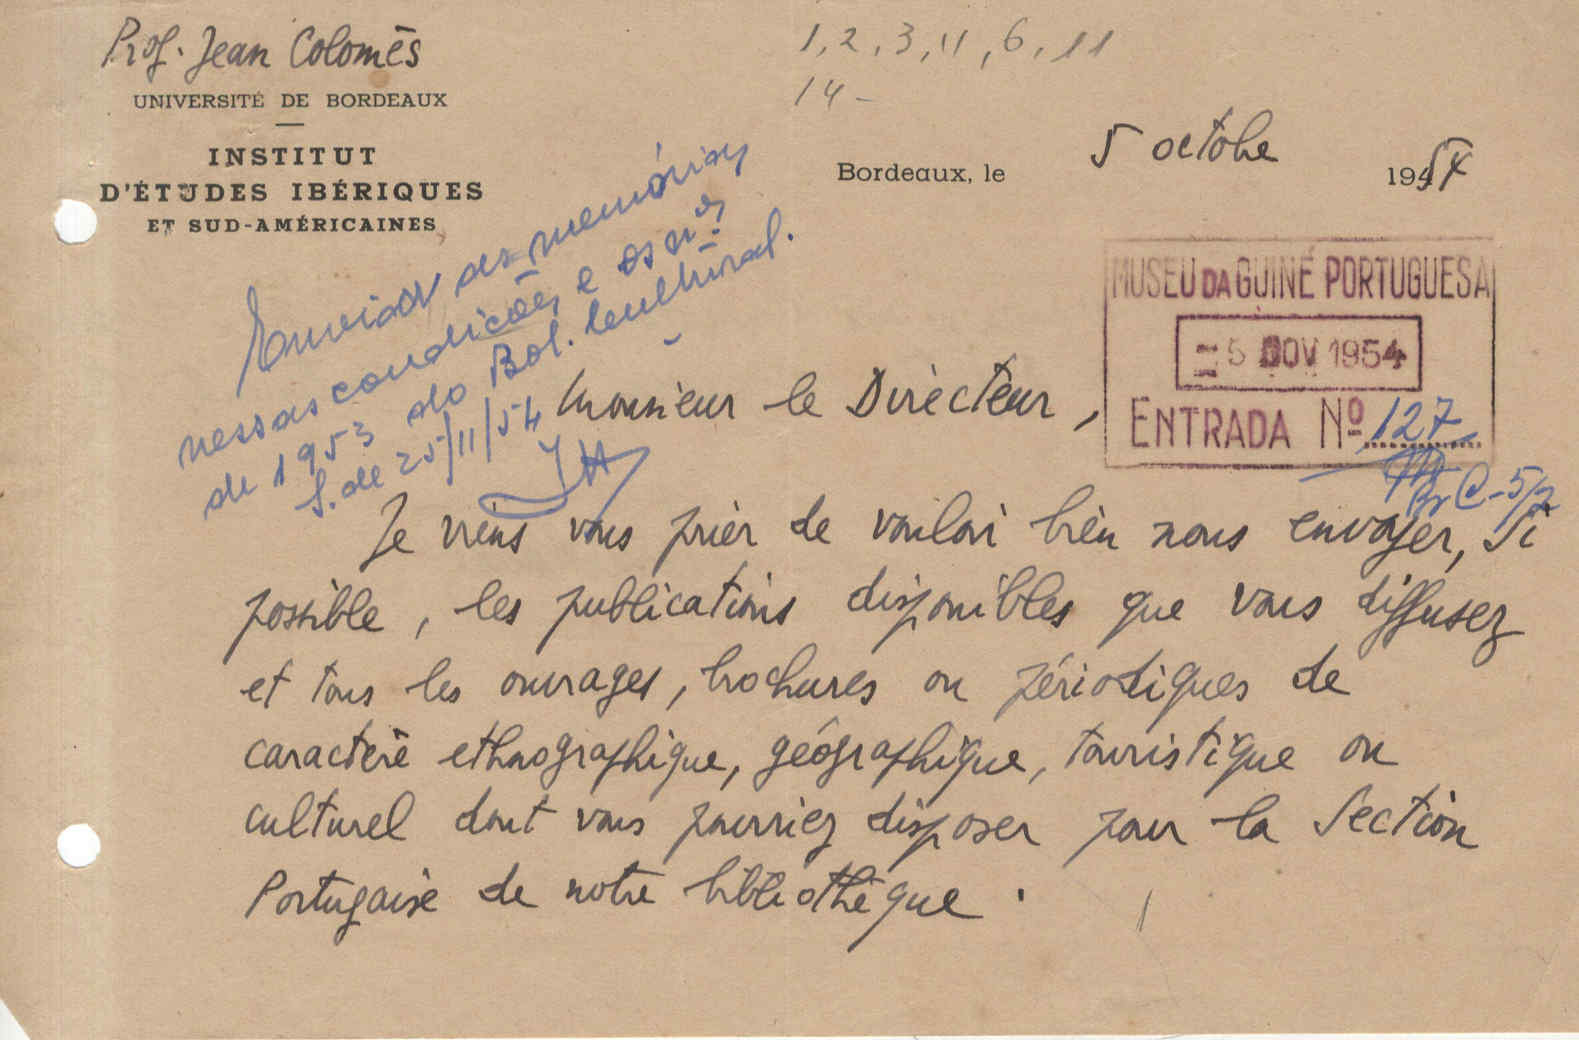 Prof. Jean Colomès
UNIVERSITÉ DE BORDEAUX
INSTITUT
D'ÉTUDES IBÉRIQUES
ET SUD-AMÉRICAINES
1, 2, 3, 4, 6, 11
14 -
Bordeaux, le 5 octobre 1954
Enviar as memórias
nessas condições e os nos
de 1953 do Bol. Cultural.
S. de 25/11/54
MUSEU DA GUINÉ PORTUGUESA
= 5 NOV 1954
ENTRADA Nº 127
C-5/2
Monsieur le Directeur,
Je viens vous prier de vouloir bien nous envoyer, si
possible, les publications disponibles que vous diffusez
et tous les ouvrages, brochures ou périodiques de
caractère ethnographique, géographique, touristique ou
culturel dont vous pourriez disposer pour la Section
Portugaise de notre bibliothèque.